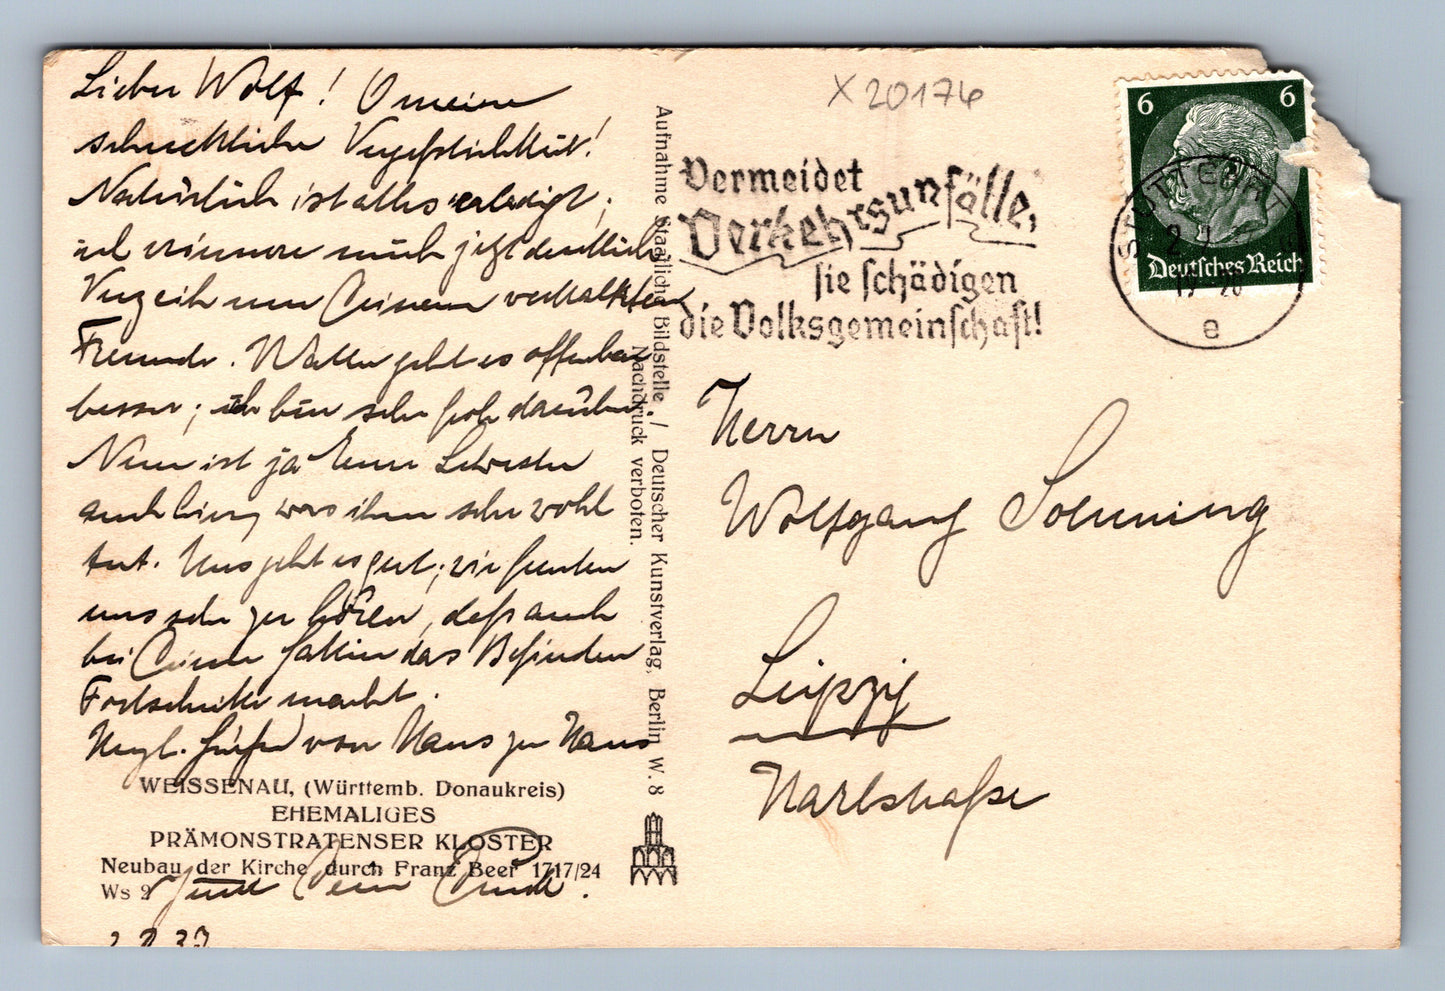 Lieber Wolf! O meine
schreckliche Vergeßlichkeit!
Natürlich ist alles erledigt;
ich erinnere mich jetzt deutlich
Verzeih nur Deinem verkalkten
Freunde. Walter geht es offenbar
besser; ich bin sehr froh darüber.
Nun ist ja Eure Schwester
auch hier, was ihm sehr wohl
tut. Uns geht es gut; wir freuten
uns sehr zu hören, daß auch
bei Deinem das Befinden
Fortschritte macht.
Herzl. Grüße von Haus zu Haus
Dein
WEISSENAU, (Württemb. Donaukreis)
EHEMALIGES
PRÄMONSTRATENSER KLOSTER
Neubau der Kirche durch Franz Beer 1717/24
Ws 9
Aufnahme Staatliche Bildstelle / Deutscher Kunstverlag, Berlin W. 8
Nachdruck verboten.
X 20174
Vermeidet
Verkehrsunfälle,
sie schädigen
die Volksgemeinschaft!
6 6
Deutsches Reich
STUTTGART
e
Herrn
Wolfgang
Leipzig
Karlstraße